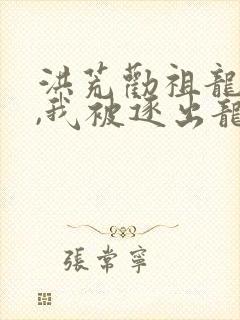 洪荒勸祖龍
,我被逐出龍
張常寧